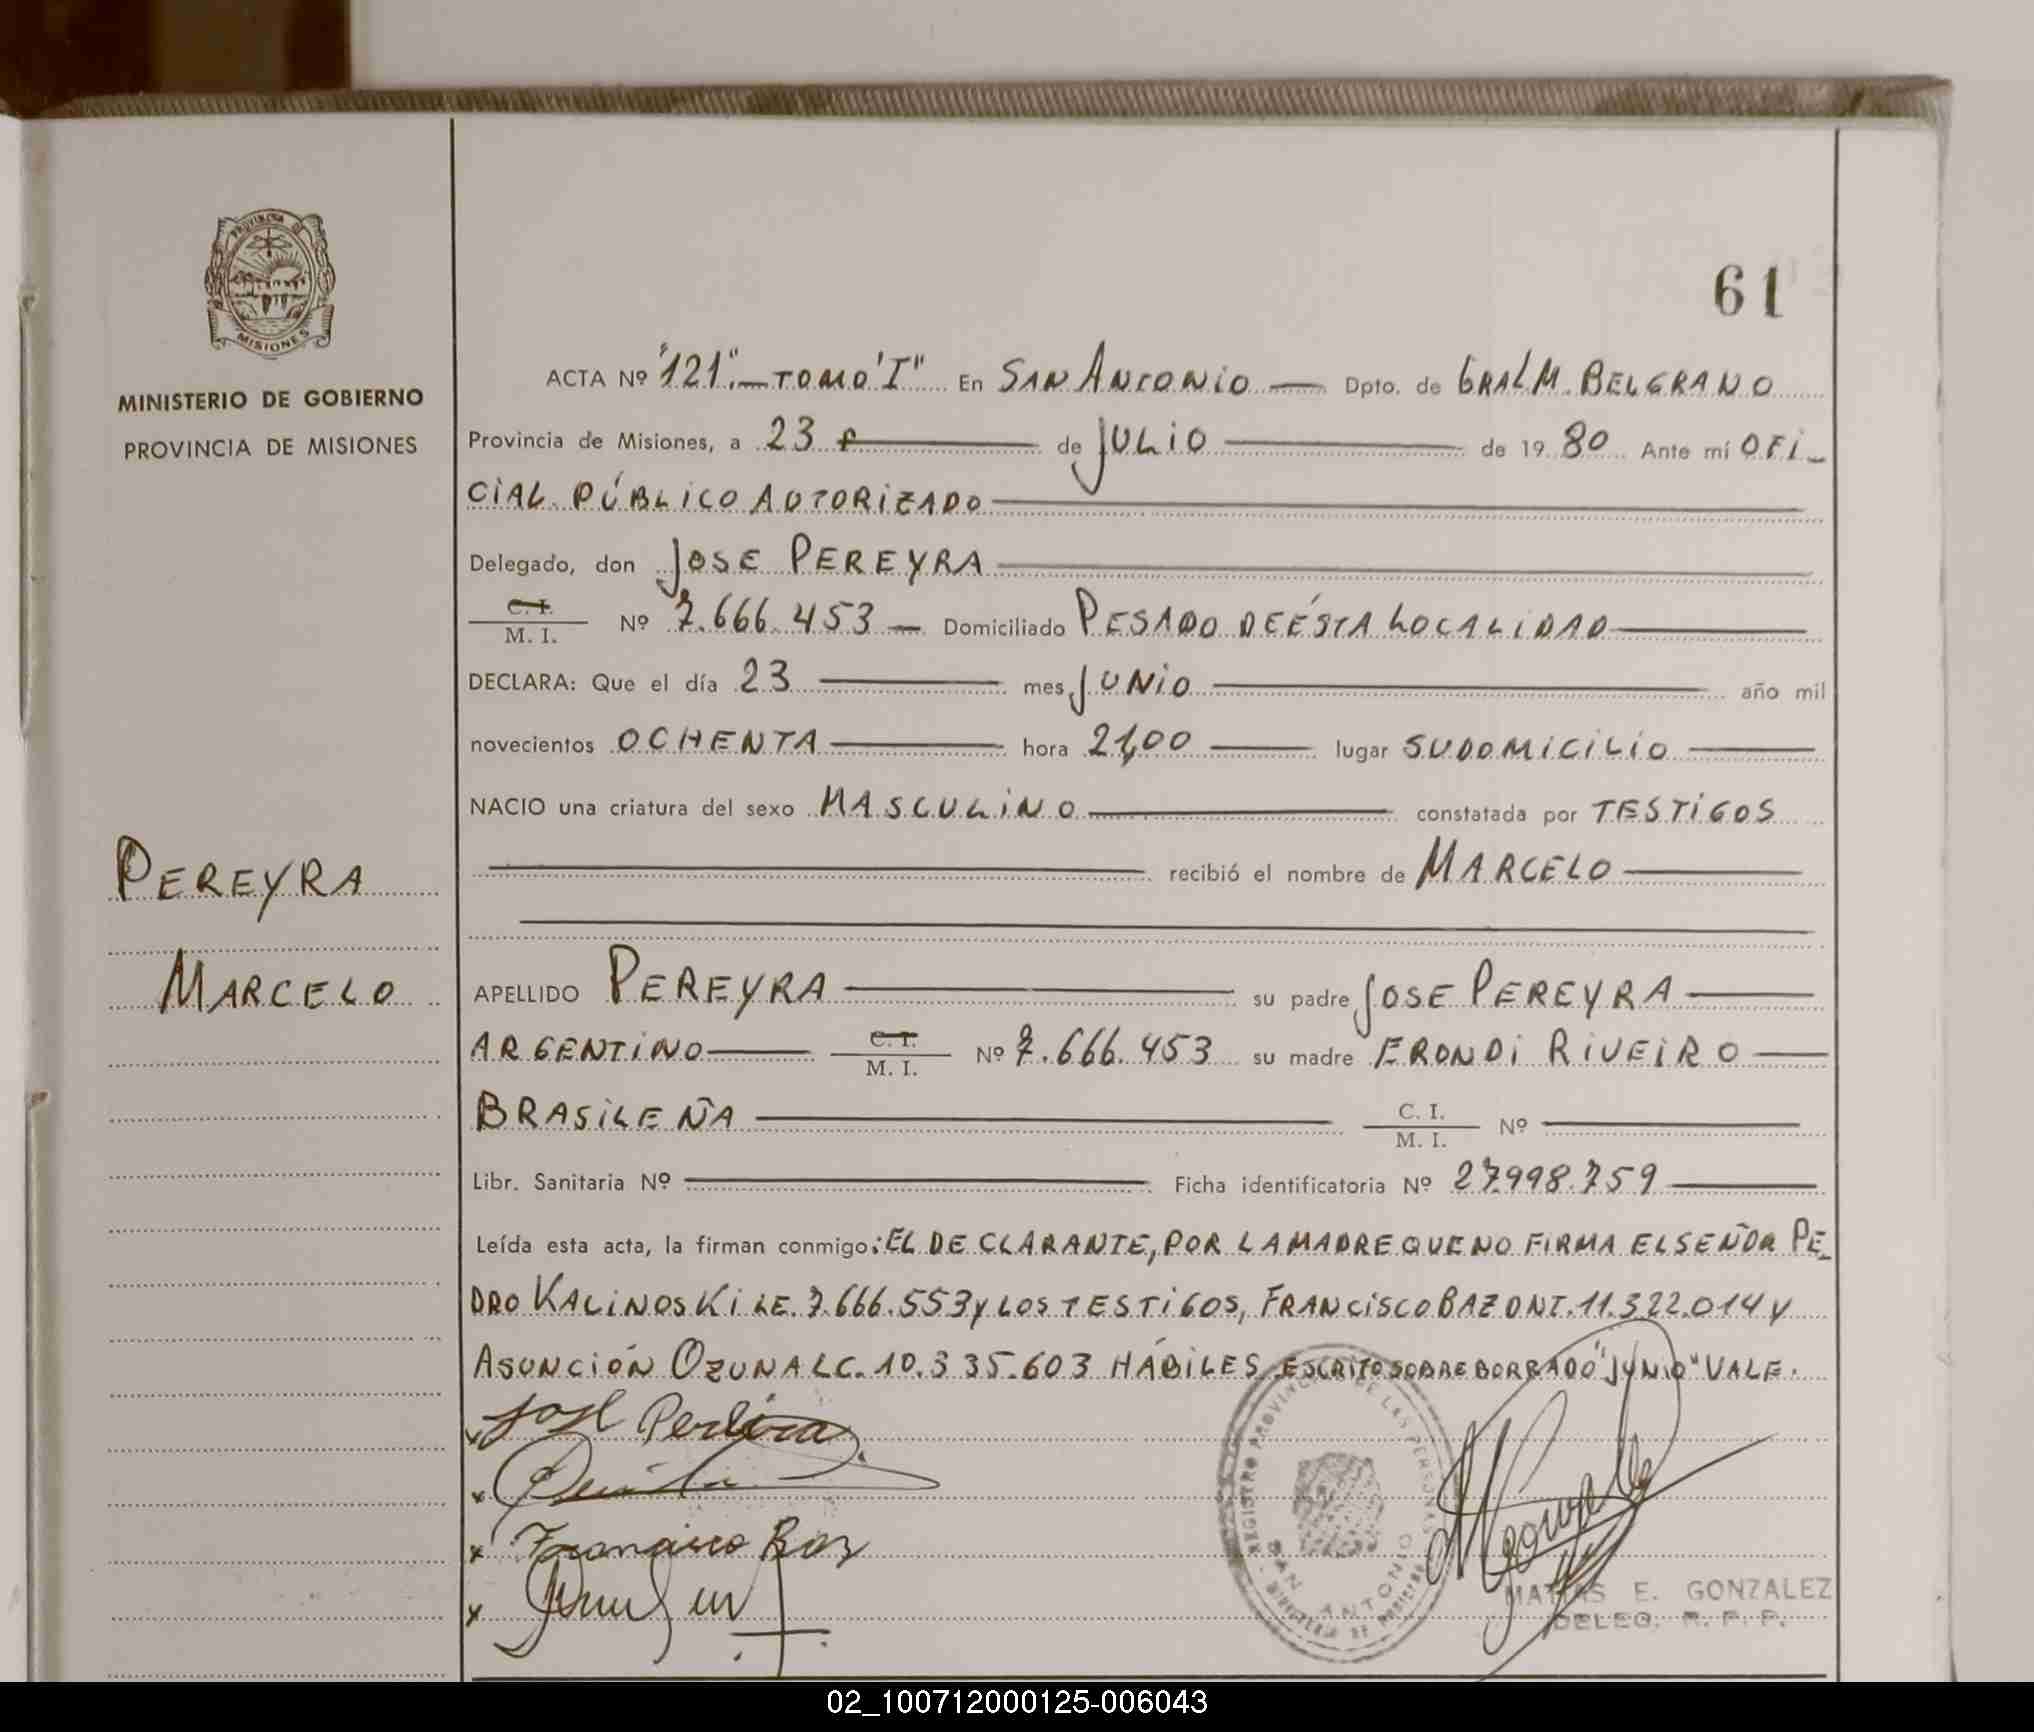 61
PROVINCIA DE
MISIONES
MINISTERIO DE GOBIERNO
PROVINCIA DE MISIONES
ACTA Nº "121".- TOMO "I" En SAN ANTONIO Dpto. de GRAL M. BELGRANO
Provincia de Misiones, a 23 de JULIO de 1980 Ante mí OFI-
CIAL PÚBLICO AUTORIZADO
Delegado, don JOSE PEREYRA
C. I. / M. I. Nº 7.666.453 Domiciliado PESADO DE ÉSTA LOCALIDAD
DECLARA: Que el día 23 mes JUNIO año mil
novecientos OCHENTA hora 21,00 lugar SU DOMICILIO
NACIO una criatura del sexo MASCULINO constatada por TESTIGOS
recibió el nombre de MARCELO
PEREYRA
MARCELO
APELLIDO PEREYRA su padre JOSE PEREYRA
ARGENTINO C. I. / M. I. Nº 7.666.453 su madre ERONDI RIVEIRO
BRASILEÑA C. I. / M. I. Nº
Libr. Sanitaria Nº Ficha identificatoria Nº 27.998.759
Leída esta acta, la firman conmigo: EL DECLARANTE, POR LA MADRE QUE NO FIRMA EL SEÑOR PE-
DRO KALINOSKI LE. 7.666.553 y LOS TESTIGOS, FRANCISCO BAZ DNI. 11.322.014 y
ASUNCIÓN OZUNA LC. 10.335.603 HÁBILES. ESCRITO SOBRE BORRADO "JUNIO" VALE.
José Pereira
Francisco Baz
REGISTRO PROVINCIAL DE LAS PERSONAS
SAN ANTONIO
MATIAS E. GONZALEZ
DELEG. R. P. P.
02_100712000125-006043